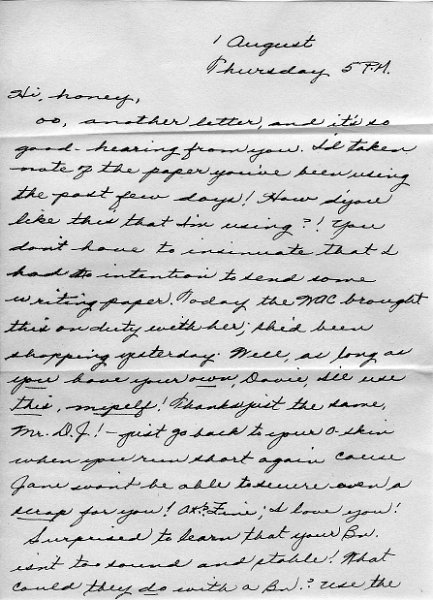 1 August
Thursday 5 P.M.
Hi, honey,
oo, another letter, and it's so
good - hearing from you. I'd taken
note of the paper you've been using
the past few days! How d'you
like this that I'm using?! You
don't have to insinuate that I
had no intention to send some
writing paper. Today the WAC brought
this on duty with her; she'd been
shopping yesterday. Well, as long as
you have your own, Davie, I'll use
this, myself! Thanks just the same,
Mr. D.J.! - just go back to your O-skin
when you run short again cause
Jane won't be able to secure even a
scrap for you! OK? Fine; I love you!
Surprised to learn that your Bn.
isn't too sound and stable! What
could they do with a Bn.? Use the